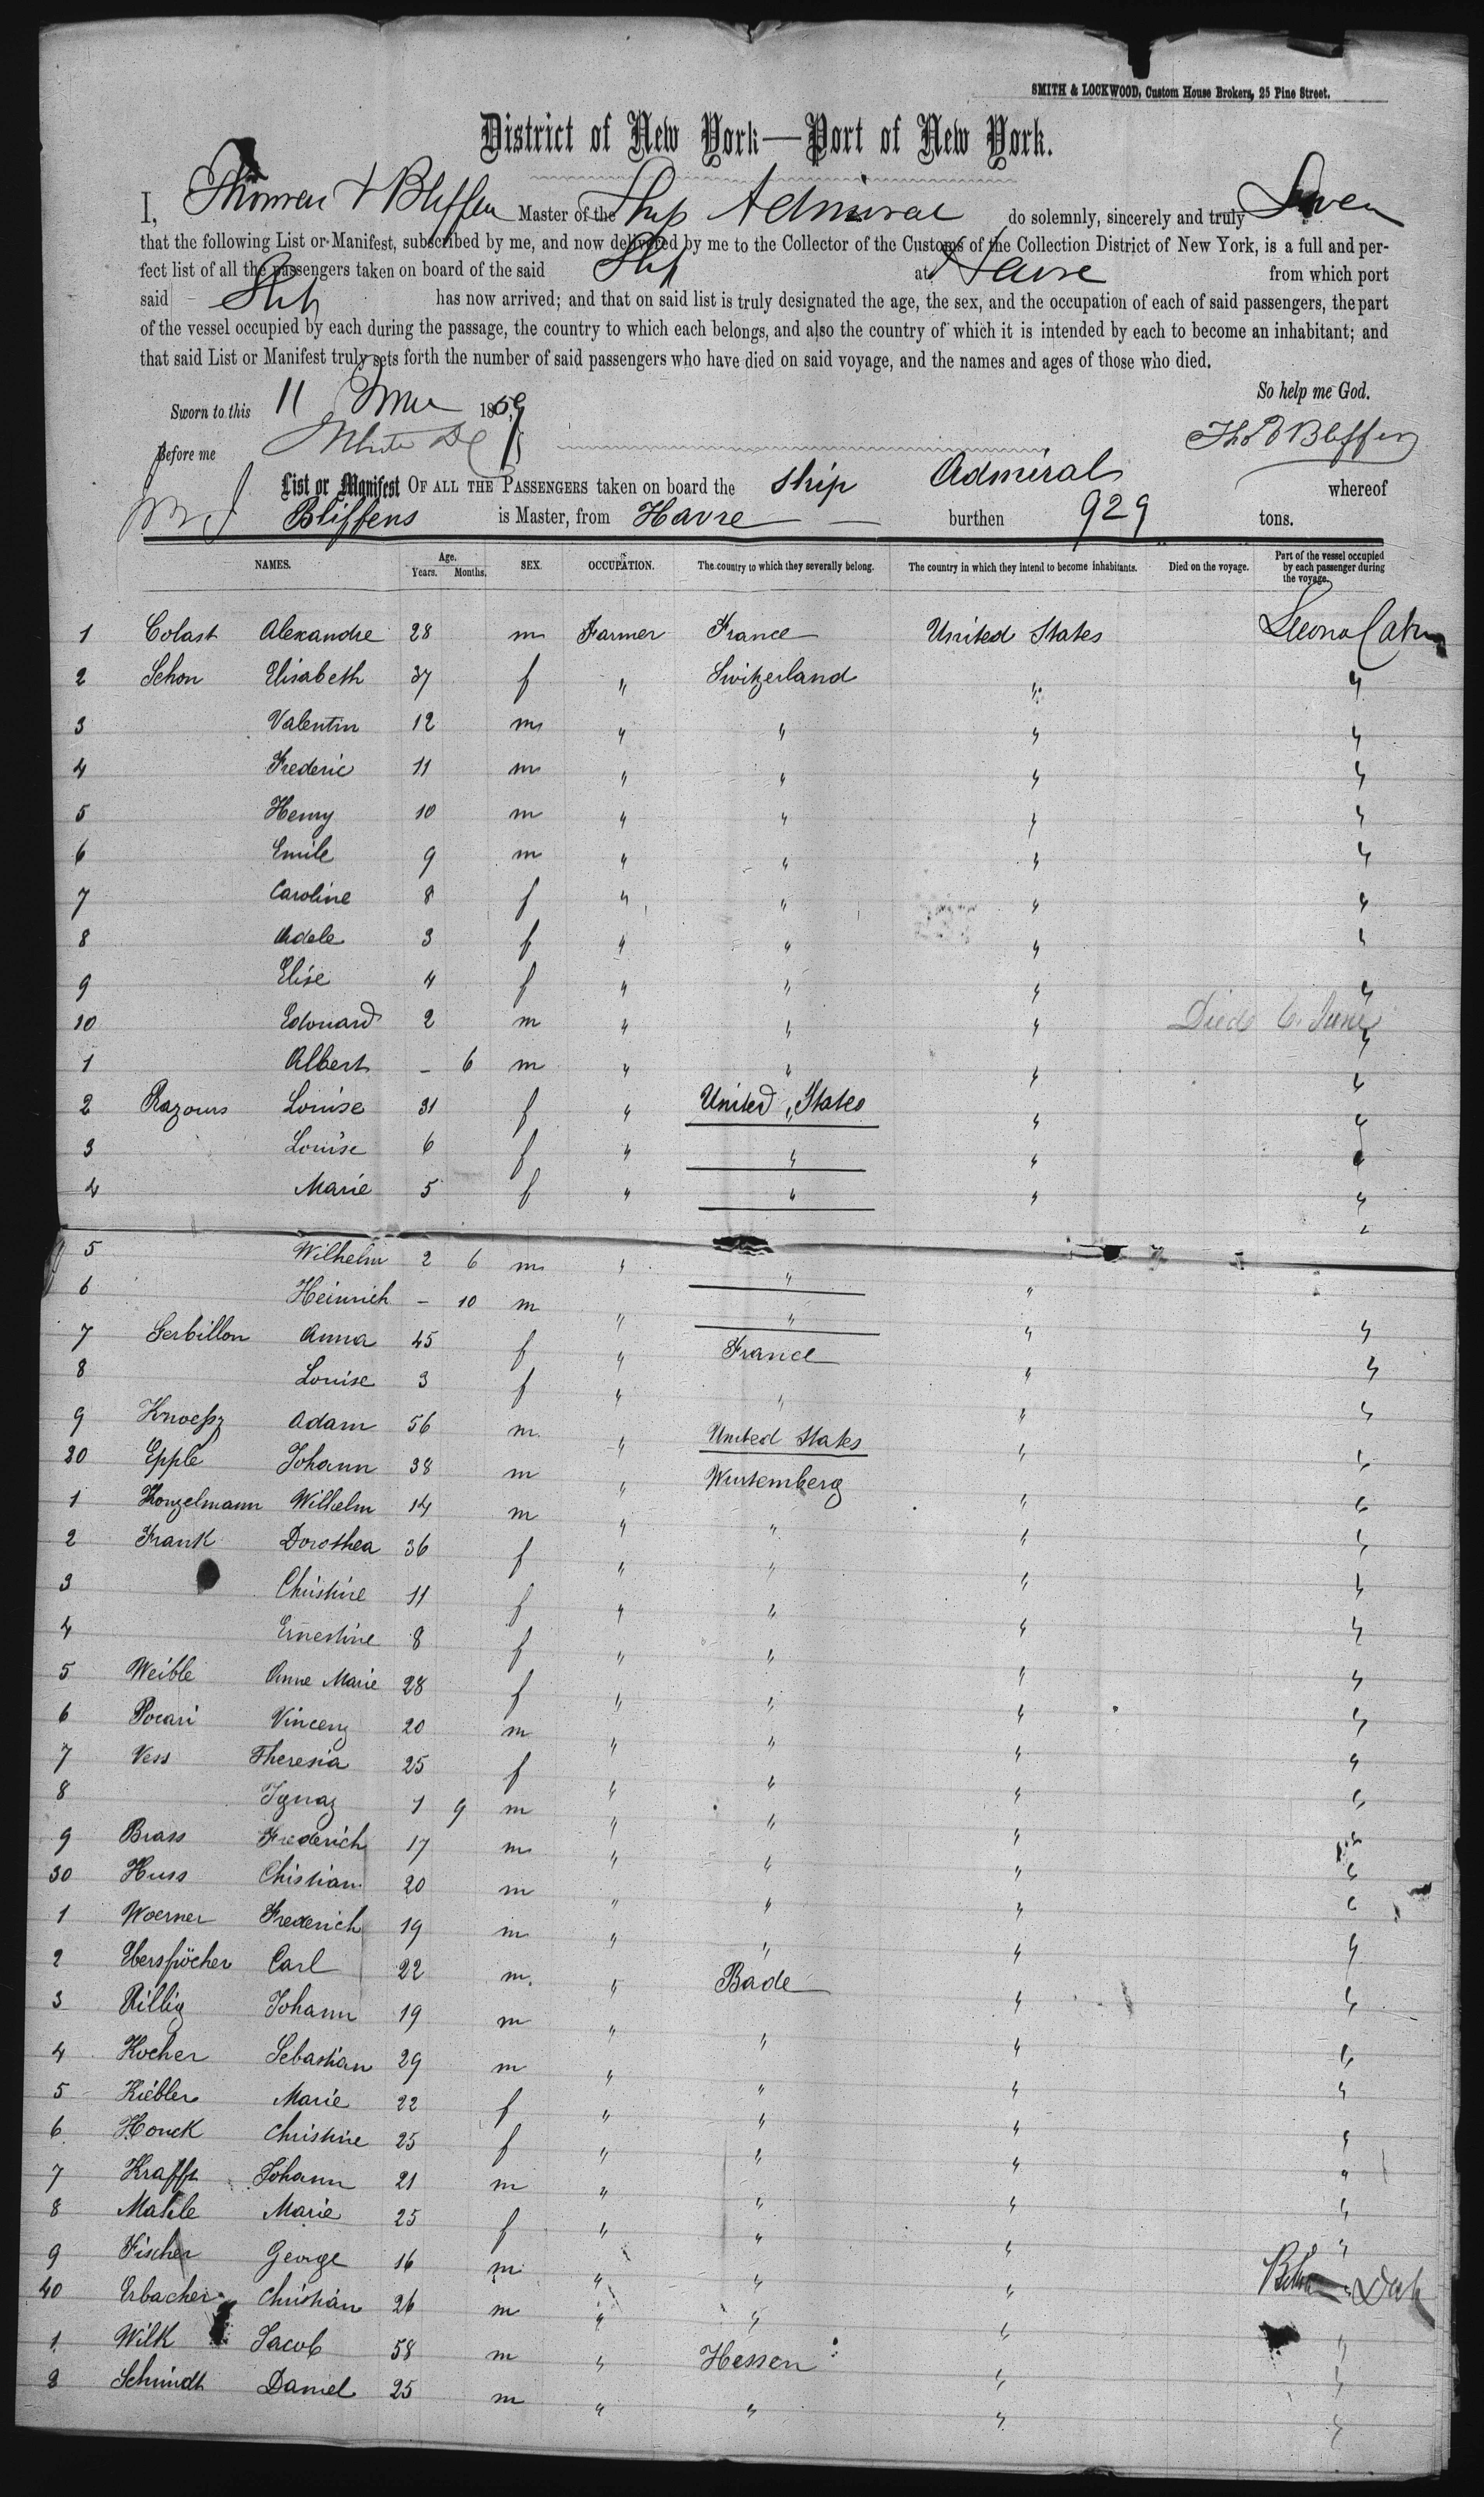 SMITH & LOCKWOOD, Custom House Brokers, 25 Pine Street.
District of New York—Port of New York.
I, Bliffen Master of the Ship Admiral do solemnly, sincerely and truly Swear
that the following List or Manifest, subscribed by me, and now delivered by me to the Collector of the Customs of the Collection District of New York, is a full and per-
fect list of all the passengers taken on board of the said Ship at Havre from which port
said Ship has now arrived; and that on said list is truly designated the age, the sex, and the occupation of each of said passengers, the part
of the vessel occupied by each during the passage, the country to which each belongs, and also the country of which it is intended by each to become an inhabitant; and
that said List or Manifest truly sets forth the number of said passengers who have died on said voyage, and the names and ages of those who died.
So help me God.
Sworn to this 11 June 1859
Before me
List or Manifest OF ALL THE PASSENGERS taken on board the ship Admiral whereof
Bliffens is Master, from Havre burthen 929 tons.
NAMES. Age. Years. Months. SEX. OCCUPATION. The country to which they severally belong. The country in which they intend to become inhabitants. Died on the voyage. Part of the vessel occupied by each passenger during the voyage.
1 Colast Alexandre 28 m Farmer France United States Second Cabin
2 Schon Elisabeth 37 f " Switzerland " "
3 Valentin 12 m " " " "
4 Frederic 11 m " " " "
5 Henry 10 m " " " "
6 Emile 9 m " " " "
7 Caroline 8 f " " " "
8 Adele 3 f " " " "
9 Elise 4 f " " " "
10 Edouard 2 m " " " Died 6. June "
1 Albert – 6 m " " " "
2 Razours Louise 31 f " United States " "
3 Louise 6 f " " " "
4 Marie 5 f " " " "
5 Wilhelm 2 6 m " " "
6 Heinrich – 10 m " " " "
7 Gerbillon Anna 45 f " France " "
8 Louise 3 f " " " "
9 Knoepz Adam 56 m " United States " "
20 Epple Johann 38 m " Wurtemberg " "
1 Konzelmann Wilhelm 14 m " " " "
2 Frank Dorothea 36 f " " " "
3 Christine 11 f " " " "
4 Ernestine 8 f " " " "
5 Weible Anne Marie 28 f " " " "
6 Pocari Vincenz 20 m " " " "
7 Vess Theresia 25 f " " " "
8 Ignaz 1 9 m " " " "
9 Brass Frederich 17 m " " " "
30 Huss Christian 20 m " " " "
1 Woerner Frederich 19 m " " " "
2 Eberspöcher Carl 22 m " Bade " "
3 Rillig Johann 19 m " " " "
4 Kocher Sebastian 29 m " " " "
5 Kiebler Marie 22 f " " " "
6 Houck Christine 25 f " " " "
7 Krafft Johann 21 m " " " "
8 Mahle Marie 25 f " " " "
9 Fischer George 16 m " " "
40 Erbacher Christian 26 m " " " "
1 Wilk Jacob 58 m " Hessen " "
2 Schmidt Daniel 25 m " " " "